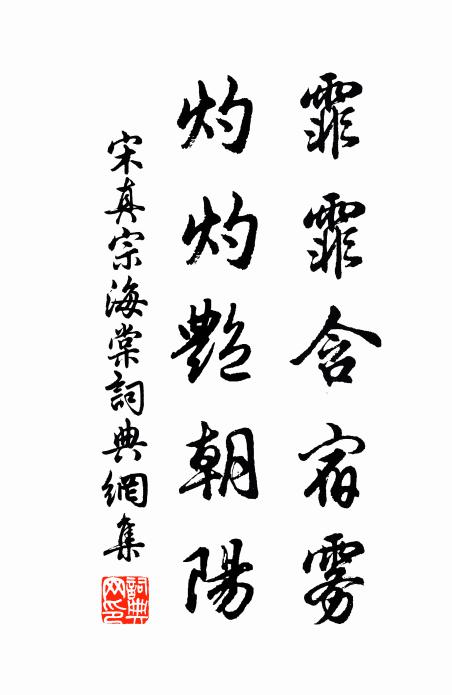 霏霏含宿雾
灼灼艳朝陽
宋真宗海棠詞典網集
詞典网印